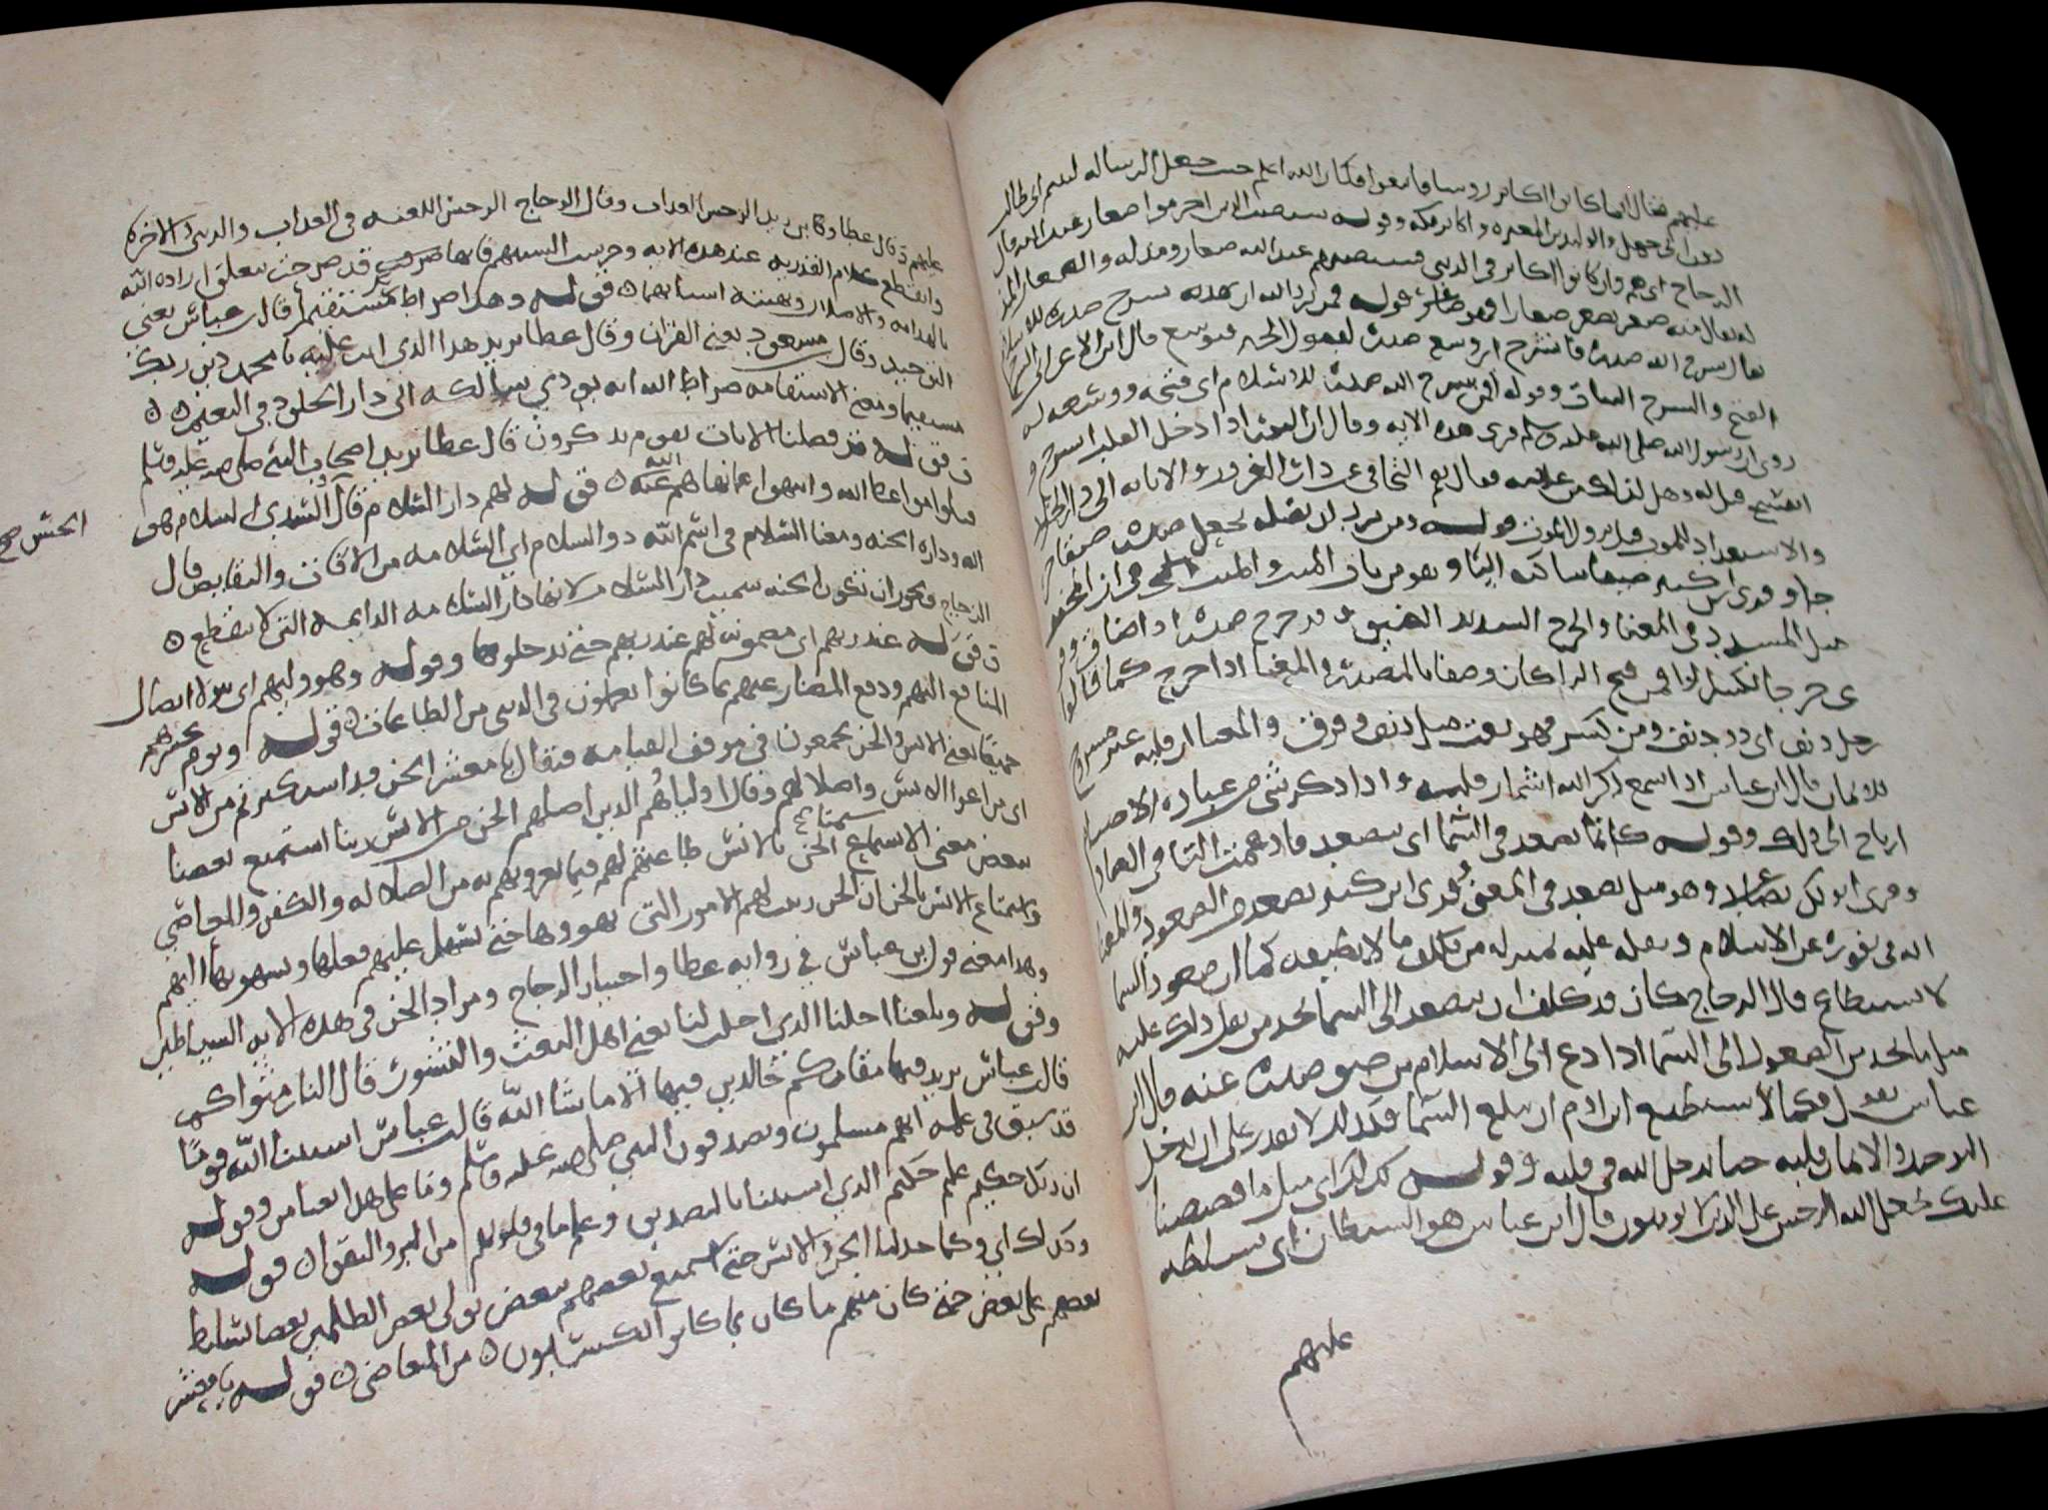 عليهم فقال انما كانوا اكابر روسا فامنعوا فكان الله اعلم حيث جعل الرساله ليسم ابى طالب
ابى جهل والوليد بن المغيره واكابر مكه وقوله سيصيب الذين اجرموا صغار عند الله قال
الزجاج اى هم وان كانوا اكابر فى الدنيى فسيصيبهم عند الله صغار ومذله والصغار
يقال منه صغر يصغر صغارا فهو صاغر قوله فمن يرد الله ان يهديه يشرح صدره للاسلام
يقال شرح الله صدره فانشرح اى وسع صدره لقبول الخير فتوسع قال ابن الاعرابى الشرح
الفتح والشرح البيان وقوله افمن شرح الله صدره للاسلام اى فتحه ووسعه
روى ان رسول الله صلى الله عليه وسلم قرى هذه الايه وقال ان النور اذا دخل القلب انشرح
انفسح قيل له وهل لذلك من علامه فقال نعم التجافى عن دار الغرور والانابه الى دار الخلود
والاستعداد للموت قبل نزول الموت قوله ومن يرد ان يضله يجعل صدره ضيقا حر
جا وقرى ابن كثير ضيقا ساكنه اليا وهو من باب الميت والميت
مثل المشدد فى المعنا والحرج الشديد الضيق قد حرج صدره اذا ضاق
ومن فتح الرا كان وصفا بالمصدر والمعنا اذا حرج كما قالوا
رجل دنف اى ذو دنف ومن كسر فهو نعت مثل دنف وفرق والمعنا ان قلبه غير
للايمان قال ابن عباس اذا سمع ذكر الله اشمار قلبه واذا ذكر شى من عباده الاصنام
ارتاح الى ذلك وقوله كانما يصعد فى السما اى يتصعد فادغمت التا فى الصاد
وقرى ابو بكر يصاعد وهو مثل يصعد فى المعنى وقرى ابن كثير يصعد من الصعود والمعنا
انه فى نفوره عن الاسلام وثقله عليه بمنزله من تكلف ما لا يطيقه كما ان صعود السما
لا يستطاع قال الزجاج كان قد كلف ان يصعد الى السما
من الصعود الى السما اذا دعى الى الاسلام من ضيق صدره عنه قال ابن
عباس يقول فكما لا يستطيع ابن ادم ان يبلغ السما فكذلك لا يقدر على ان يدخل
التوحيد والايمان قلبه حتا يدخل الله فى قلبه وقوله كذلك اى مثل ما قصصنا
عليك يجعل الله الرجس على الذين لا يومنون قال ابن عباس هو الشيطان اى يسلطه
عليهم
عليهم وقال عطا وكا ابن زيد الرجس العذاب وقال الزجاج الرجس اللعنه فى الدنيى والعذاب فى الاخره
وانقطع كلام القدريه عند هذه الايه وخرست السنتهم فانها صرحت تعلق اراده الله
بالهدايه والاضلال قوله وهذا صراط ربك مستقيما قال ابن عباس يعنى
التوحيد وقال ابن مسعود يعنى القران وقال عطا يريد هذا الذى انت عليه يا محمد دين ربك
مستقيما ومعنى الاستقامه صراط الله انه يودى سالكه الى دار الخلود فى النعيم
قوله قد فصلنا الايات لقوم يذكرون قال عطا يريد اصحاب النبى صلى الله عليه وسلم
قبلوا مواعظ الله وانتهوا عما نهاهم الله عنه قوله لهم دار السلام قال السدى السلام هو
الله وداره الجنه ومعنا السلام فى اسم الله ذو السلام اى السلامه من الافات والنقايص قال
الزجاج ويجوز ان تكون الجنه سميت دار السلام لانها دار السلامه الدايمه التى لا تنقطع
قوله عند ربهم اى مضمونه لهم عند ربهم حتى يدخلوها وقوله وهو وليهم اى يتولا ايصال
المنافع اليهم ودفع المضار عنهم بما كانوا يعملون فى الدنيى من الطاعات قوله ويوم نحشرهم
جميعا يعنى الانس والجن يجمعون فى موقف القيامه فيقال يا معشر الجن قد استكثرتم من الانس
اى من اغوا الانس واضلالهم وقال اولياهم الذين اضلهم الجن من الانس ربنا استمتع بعضنا
ببعض معنى استمتاع الجن بالانس طاعتهم لهم فيما يغرونهم به من الضلاله والكفر والمعاصى
واستمتاع الانس بالجن ان الجن زينت لهم الامور التى يهوونها حتى يسهل عليهم فعلها
وهذا معنى قول ابن عباس فى روايه عطا واختيار الزجاج ومراد الجن فى هذه الايه الشياطين
وقوله وبلغنا اجلنا الذى اجلت لنا يعنى اجل البعث والنشور قال النار مثواكم
قال ابن عباس يريد فيها مقامكم خالدين فيها الا ما شا الله قال ابن عباس استثنا الله قوما
قد سبق فى علمه انهم يسلمون ويصدقون النبى صلى الله عليه وسلم وما على هذا بمعنا من وقوله
ان ربك حكيم عليم حكم الذى استثنا بالتصديق وعلم ما فى قلوبهم من البر والتقى قوله
وكذلك اى وكما خذلنا الجن والانس حتى استمتع بعضهم ببعض نولى بعض الظالمين بعضا نسلط
بعضهم على بعض حتى كان منهم ما كان بما كانوا يكسبون من المعاصى قوله يا معشر
الجنس صح